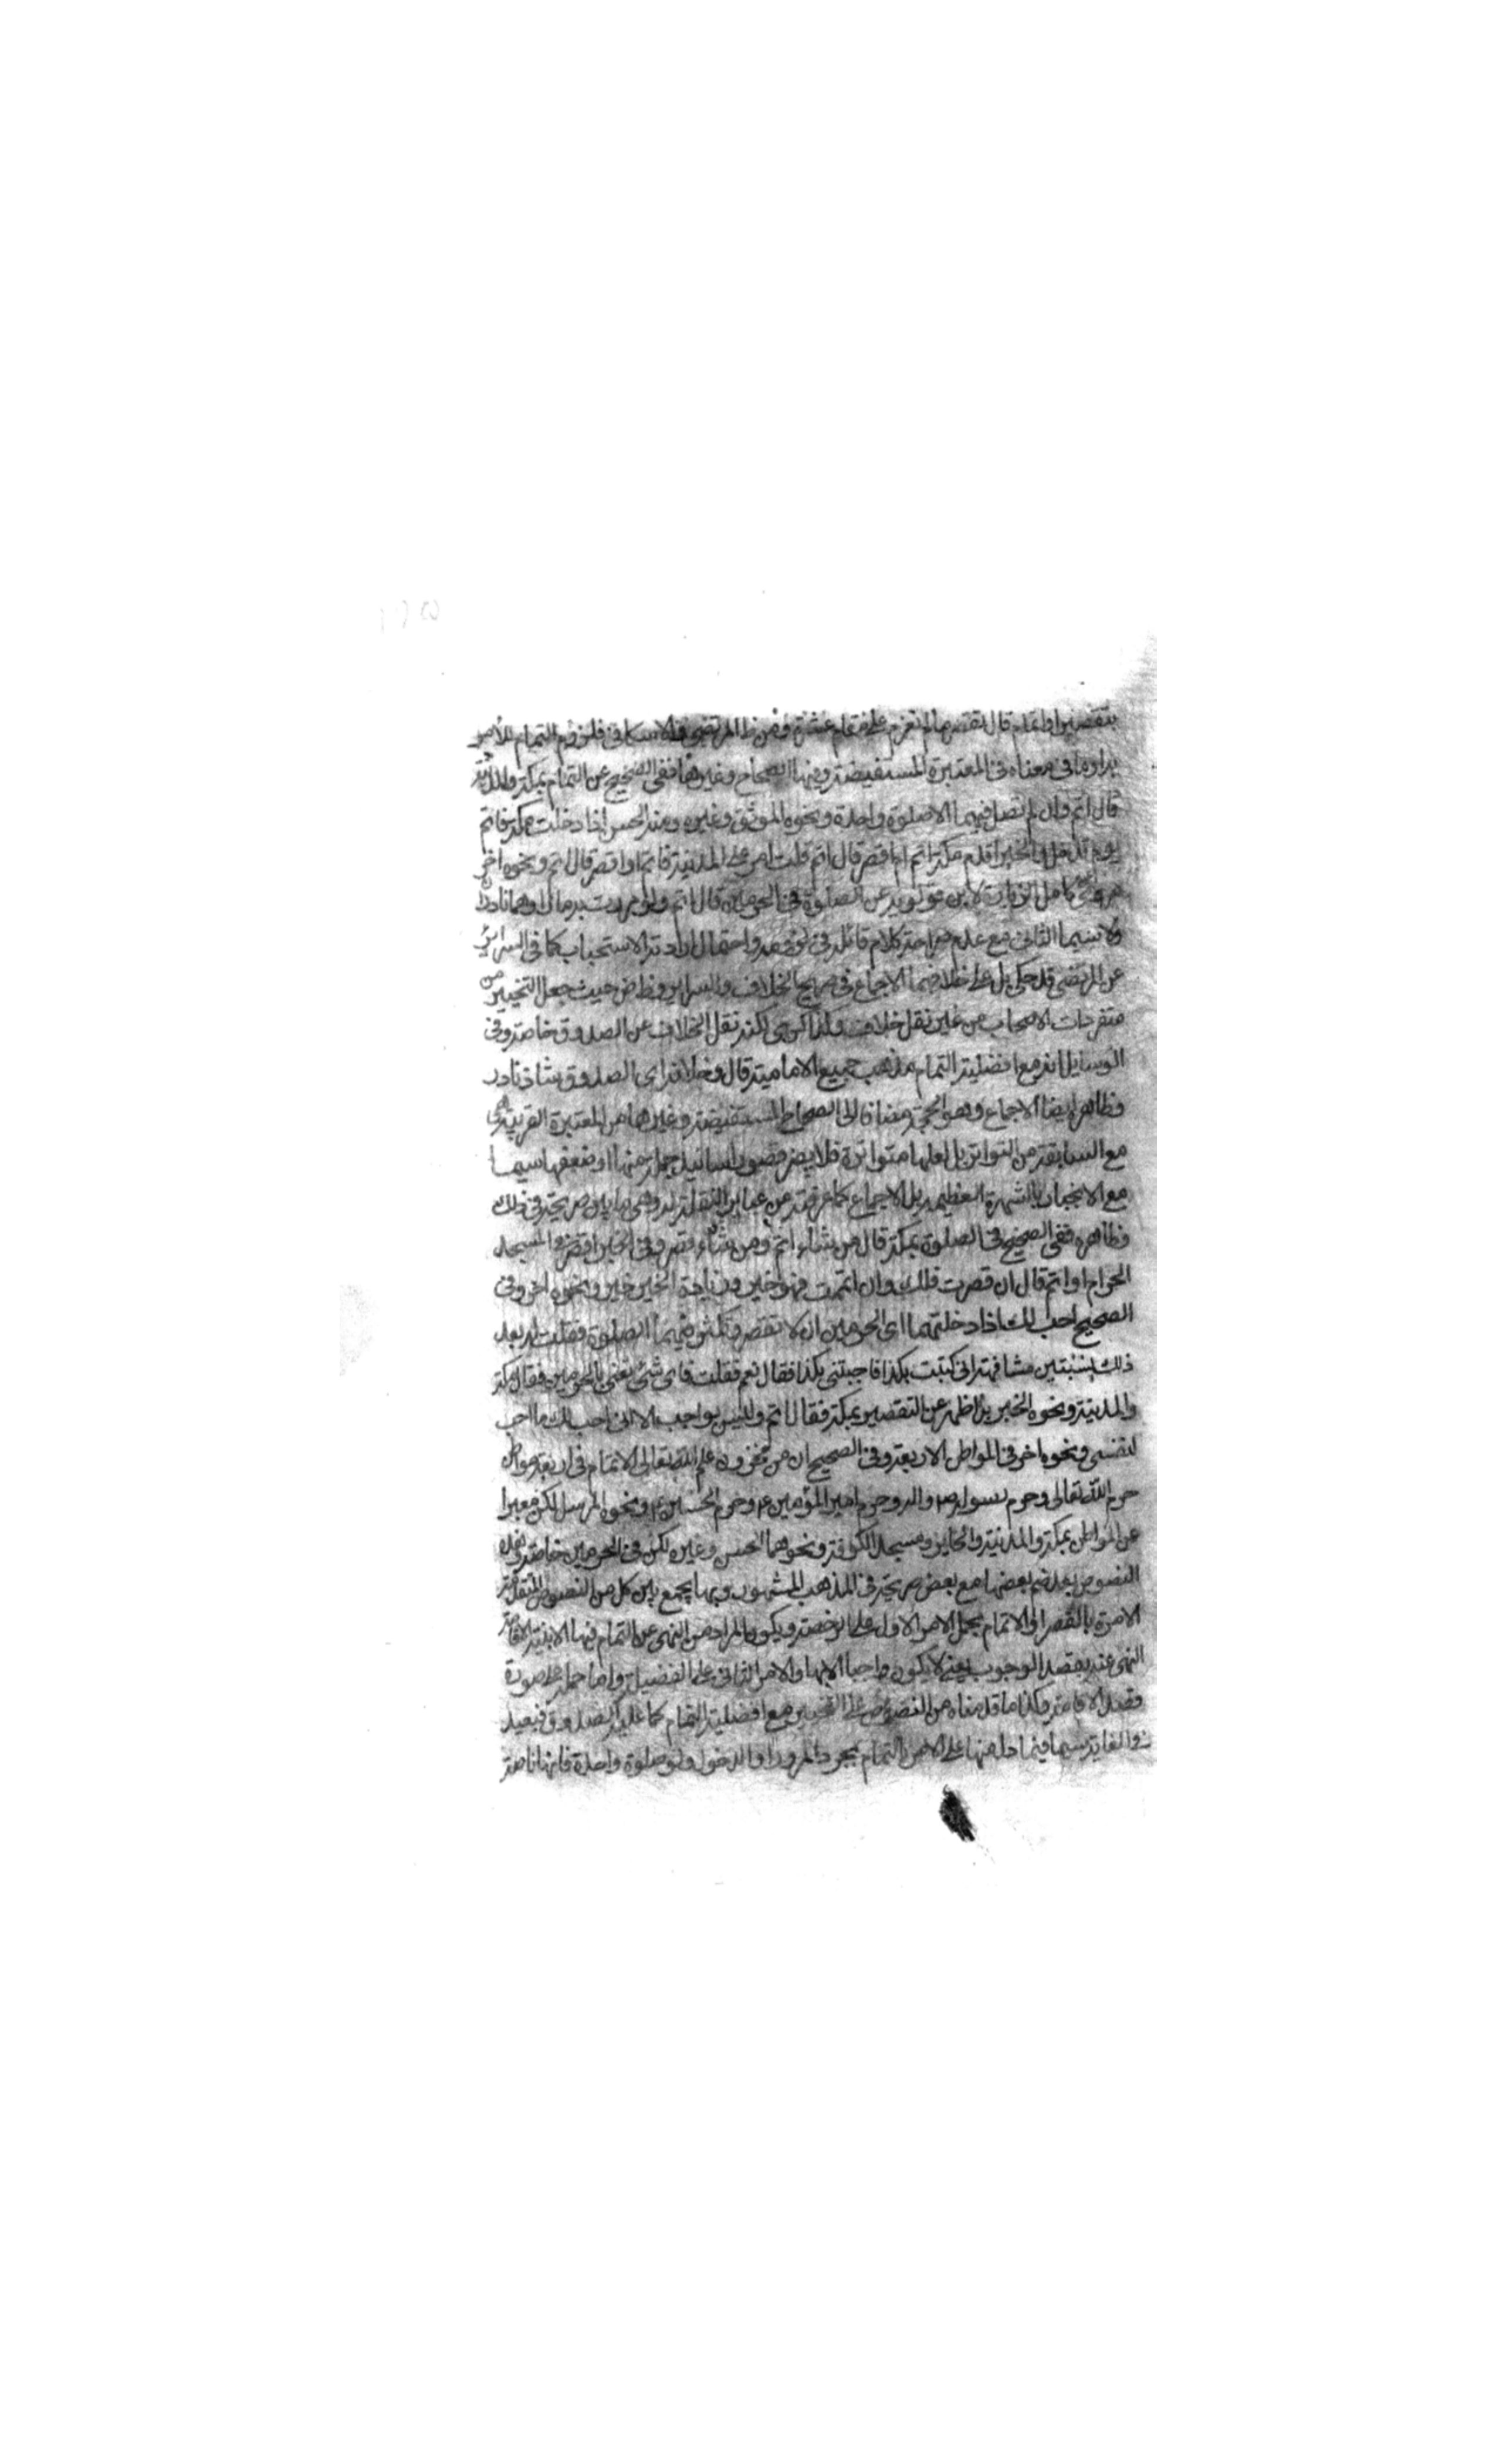 بتقصير او اتمام قال تقصر ما لم تعزم على مقام عشرة ومن ظاهر المرتضى والاسكافى فلزوم التمام للأمر
به او ما فى معناه فى المعتبرة المستفيضة ومنها الصحاح وغيرها ففى الصحيح عن التمام بمكة والمدينة
قال اتم وان لم تصل فيهما الا صلوة واحدة ونحوه الموثق وغيره ومنه الحسن اذا دخلت مكة فاتم
يوم تدخل والخبر اقدم مكة اتم ام اقصر قال اتم قلت امر على المدينة فاتم او اقصر قال اتم ونحوه اخر
مروى كامل الزيارة لابن قولويه عن الصلوة فى الحرمين قال اتم ولو مررت به مارا وهما نادران
ولا سيما الثانى مع عدم صراحة كلام قائله فى لزومه واحتمال ارادته الاستحباب كما فى السرائر
عن المرتضى قد حكى بل على خلافهما الاجماع فى صريح الخلاف والسرائر وظاهر حيث جعل التخيير من
متفردات الاصحاب من غير نقل خلاف وكذا كرى لكنه نقل الخلاف عن الصدوق خاصة وفى
الوسايل انه مع افضلية التمام مذهب جميع الامامية قال وخلافه اى الصدوق شاذ نادر
وظاهره ايضا الاجماع وهو الحجة مضافا الى الصحاح المستفيضة وغيرها من المعتبرة القريبة هى
مع السابقة من التواتر بل لعلها متواترة فلا يضر قصور اسانيد جملة منها او ضعفها سيما
مع الانجبار بالشهرة العظيمة بل الاجماع كما عرفته من عباير النقلة له وهى ما بين صريحة فى ذلك
وظاهرة ففى الصحيح فى الصلوة بمكة قال من شاء اتم ومن شاء قصر وفى الخبر اقصر فى المسجد
الحرام او اتم قال ان قصرت فلك وان اتممت فهو خير وزيادة الخير خير ونحوه اخر وفى
الصحيح احب لك اذا دخلتهما اى الحرمين ان لا تقصر وتكثر فيهما الصلوة فقلت له بعد
ذلك بسنتين مشافهة انى كتبت بكذا فاجبتنى بكذا فقال نعم فقلت فاى شئ تعنى بالحرمين فقال مكة
والمدينة ونحوه الخبر عن التقصير بمكة فقال اتم وليس بواجب الا انى احب لك ما احب
لنفسى ونحوه اخر فى المواطن الاربعة وفى الصحيح ان من مخزون علم الله تعالى الاتمام فى اربعة مواطن
حرم الله تعالى وحرم رسوله ص واله وحرم امير المؤمنين ع وحرم الحسين ع ونحوه المرسل لكن معبرا
عن المواطن بمكة والمدينة والحاير ومسجد الكوفة ونحوهما الحسن وغيره لكن فى الحرمين خاصة وهذه
النصوص بعد ضم بعضها مع بعض صريحة فى المذهب المشهور وبها يجمع بين كل من النصوص المتقدمة
الامرة بالقصر او الاتمام بحمل الامر الاول على الرخصة ويكون المراد من النهى عن التمام فيها الا بنية الاقامة
النهى عنه بقصد الوجوب يعنى لا يكون واجبا الا بها والامر الثانى على الفضيلة واما حمله على صورة
قصد الاقامة وكذا ما قدمناه من النصوص على التخيير مع افضلية التمام كما عليه الصدوق فبعيد
فى الغاية سيما فيما دل منها على الامر بالتمام بمجرد المرور او الدخول ولو صلوة واحدة فانها ناصة